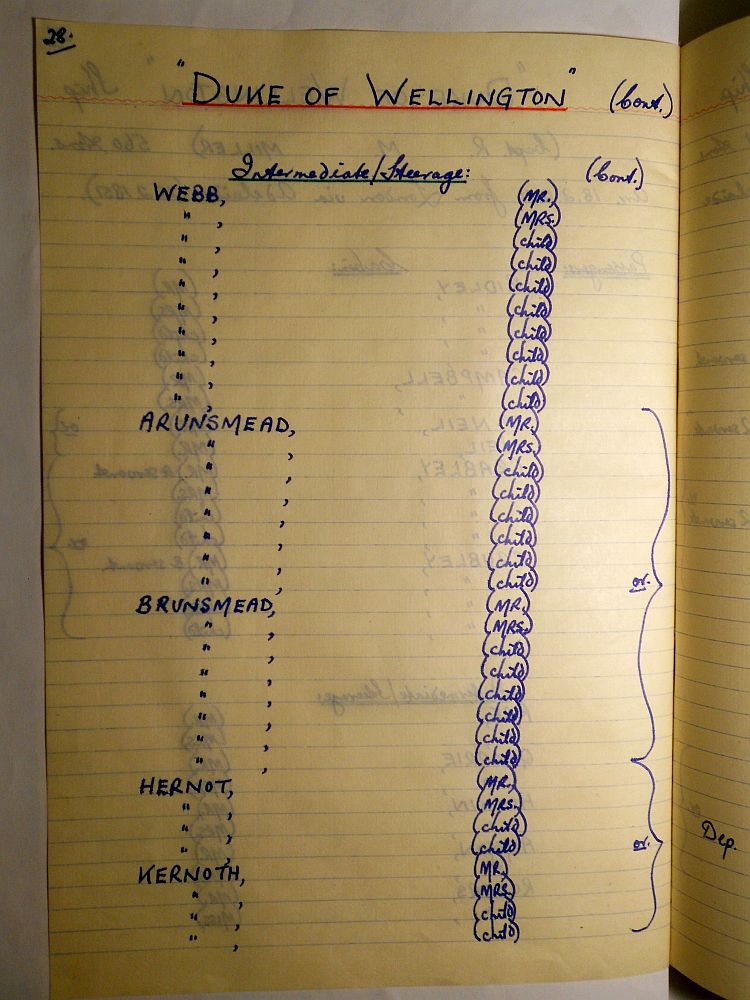 28.
"DUKE OF WELLINGTON" (Cont.)
Intermediate/Steerage: (Cont.)
WEBB, (MR.)
" , (MRS.)
" , (child)
" , (child)
" , (child)
" , (child)
" , (child)
" , (child)
" , (child)
" , (child)
ARUNSMEAD, (MR.)
" , (MRS.)
" , (child)
" , (child)
" , (child)
" , (child)
" , (child)
" , (child) or.
BRUNSMEAD, (MR.)
" , (MRS.)
" , (child)
" , (child)
" , (child)
" , (child)
" , (child)
" , (child)
HERNOT, (MR.)
" , (MRS.)
" , (child)
" , (child) or.
KERNOTH, (MR.)
" , (MRS.)
" , (child)
" , (child)
Dep.